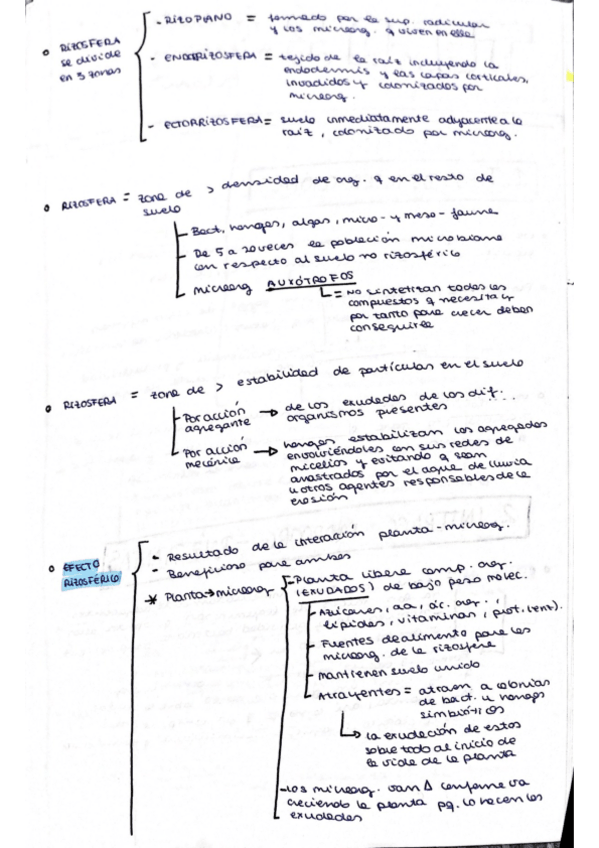 - RIZOPLANO = formado por la sup. radicular
y los microorg. q viven en ella
o RIZOSFERA
se divide
en 3 zonas
- ENDORRIZOSFERA = tejido de la raíz incluyendo la
endodermis y las capas corticales,
invadidos y colonizados por
microorg.
- ECTORRIZOSFERA = suelo inmediatamente adyacente a la
raíz, colonizado por microorg.
o RIZOSFERA = zona de > densidad de org. q en el resto de
suelo
Bact, hongos, algas, micro- y meso- fauna
De 5 a 20 veces la población microbiana
con respecto al suelo no rizosférico
microorg AUXÓTROFOS
= NO sintetizan todos los
compuestos q necesita y
por tanto para crecer deben
conseguirla
o RIZOSFERA = zona de > estabilidad de partículas en el suelo
Por acción → de los exudados de los dif.
agregante organismos presentes
Por acción → hongos estabilizan los agregados
mecánica envolviéndoles con sus redes de
micelios y evitando q sean
arrastrados por el agua de lluvia
u otros agentes responsables de la
erosión
o EFECTO
RIZOSFÉRICO
- Resultado de la interacción planta-microorg.
- Beneficioso para ambos
* Planta → microorg
- Planta libera comp. org.
(EXUDADOS) de bajo peso molec.
Azúcares, aa, ác. org.,
lípidos, vitaminas, prot. (enz).
Fuentes de alimento para los
microorg. de la rizosfera
mantienen suelo unido
Atrayentes = atraen a colonias
de bact. u hongos
simbióticos
↳ la exudación de estos
sobre todo al inicio de
la vida de la planta
- Los microorg. van Δ conforme va
creciendo la planta pq. lo hacen los
exudados